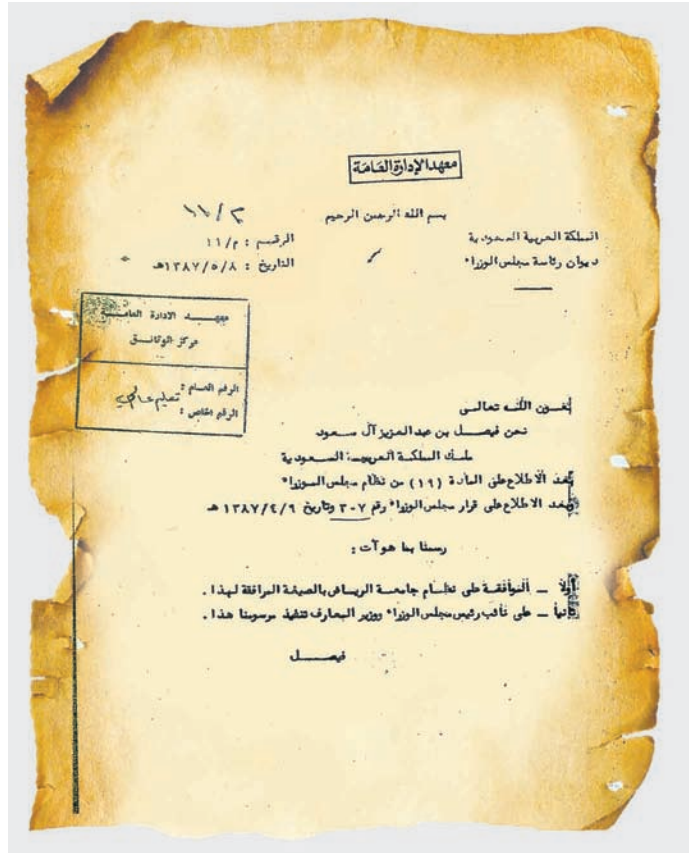 معهد الإدارة العامة
بسم الله الرحمن الرحيم
م/١١
المملكة العربية السعودية
الرقم : م/١١
ديوان رئاسة مجلس الوزراء
التاريخ : ١٣٨٧/٥/٨هـ
معهد الادارة العامة
مركز الوثائق
الرقم العام : تعليم عالي
الرقم الخاص :
بعون الله تعالى
نحن فيصل بن عبد العزيز آل سعود
ملك المملكة العربية السعودية
بعد الاطلاع على المادة (١٩) من نظام مجلس الوزراء
وبعد الاطلاع على قرار مجلس الوزراء رقم ٣٠٧ وتاريخ ١٣٨٧/٤/٦ هـ
رسمنا بما هو آت :
أولا – الموافقة على نظام جامعة الرياض بالصيغة المرافقة لهذا .
ثانيا – على نائب رئيس مجلس الوزراء ووزير المعارف تنفيذ مرسومنا هذا .
فيصل